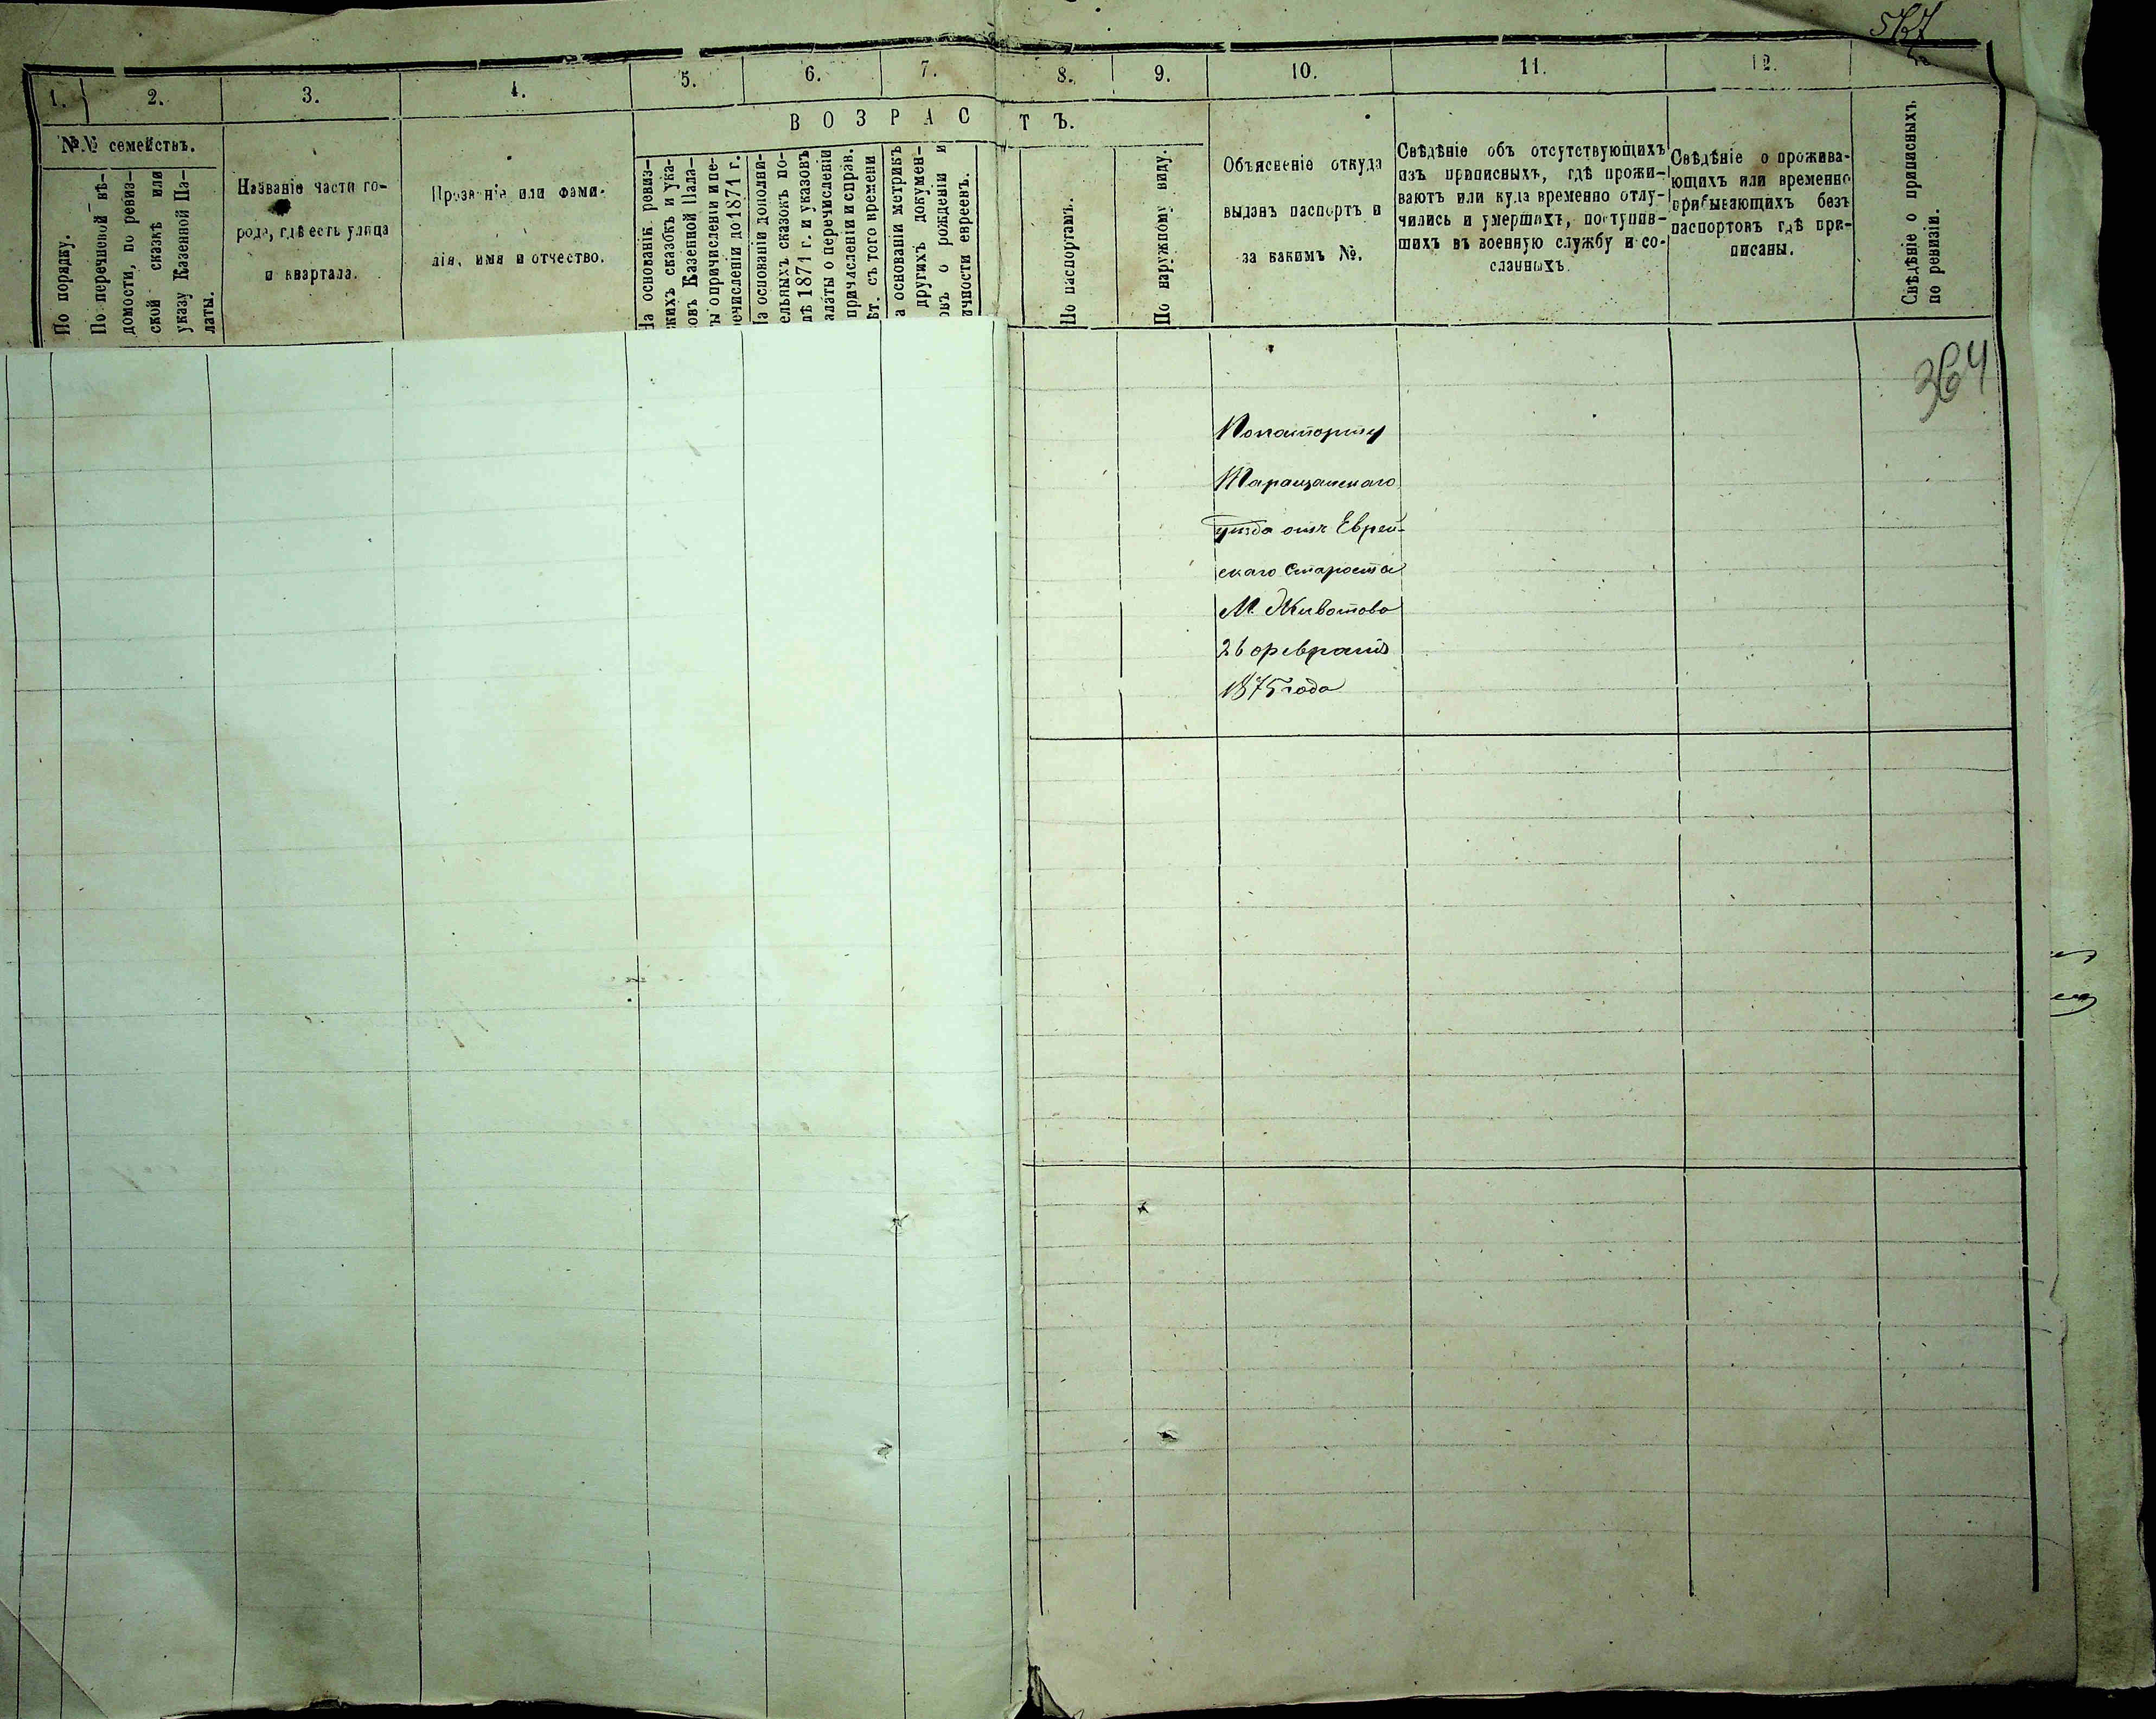 1. 2. 3. 4. 5. 6. 7. 8. 9. 10. 11. 12.
В О З Р А С Т Ъ.
№№ семействъ.
По порядку.
По перечневой вѣ-
домости, по ревиз-
ской сказкѣ или
указу Казенной Па-
латы.
Названіе части го-
рода, гдѣ есть улица
и квартала.
Прозваніе или фами-
лія, имя и отчество.
На основаніи ревиз-
скихъ сказокъ и ука-
зовъ Казенной Пала-
ты о причисленіи и пе-
речисленіи до 1871 г.
На основаніи дополни-
тельныхъ сказокъ по-
слѣ 1871 г. и указовъ
палаты о перечисленіи
причисленіи и исправ.
лѣт. съ того времени
На основаніи метрикъ
другихъ докумен-
товъ о рожденіи и
личности евреевъ.
По паспортамъ.
По наружному виду.
Объясненіе откуда
выданъ паспортъ и
за какимъ №.
Свѣдѣніе объ отсутствующихъ
изъ приписныхъ, гдѣ прожи-
ваютъ или куда временно отлу-
чились и умершихъ, поступив-
шихъ въ военную службу и со-
сланныхъ
Свѣдѣніе о прожива-
ющихъ или временно
прибывающихъ безъ
паспортовъ гдѣ при-
писаны.
Свѣдѣніе о приписныхъ
по ревизіи.
364
Попаспорту
Таращанскаго
уѣзда отъ Еврей-
скаго Старосты
М. Животова
26 февраля
1875 года